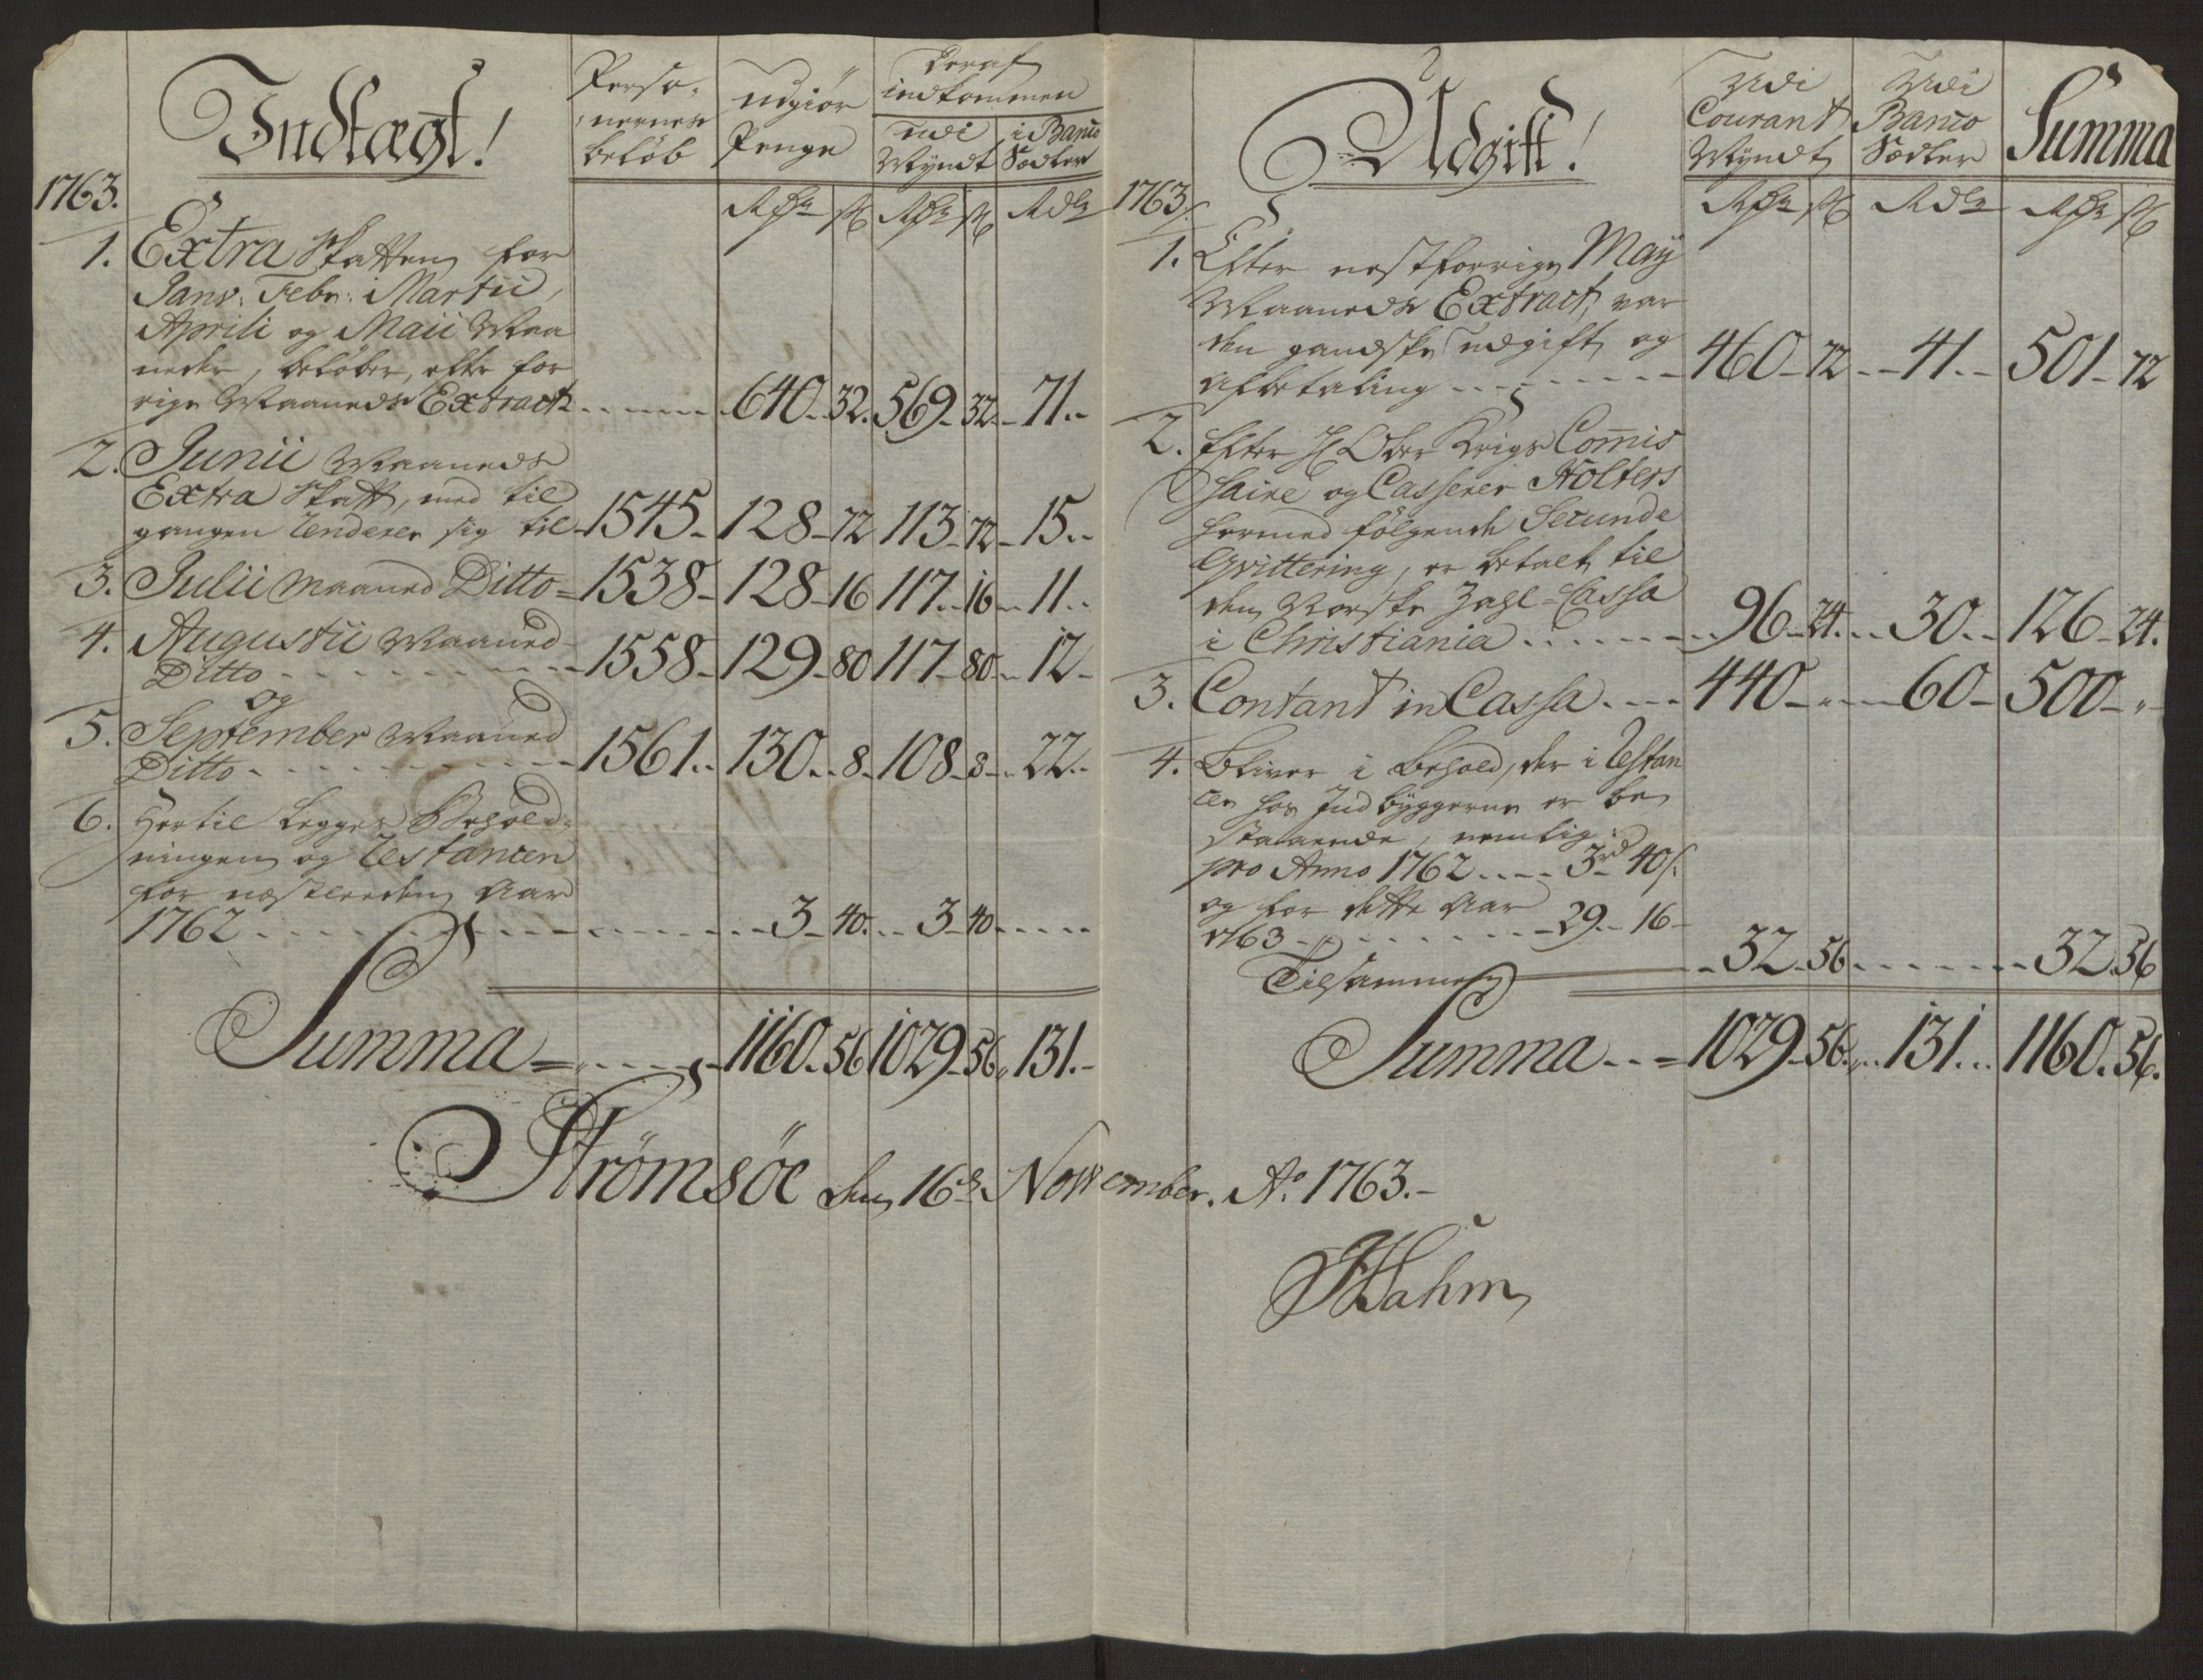 Indtægt!
Perso-
nernes
beløb
udgiør
Penge
Deraf
indkommen
udi
Myndt
i Banco
Sedler
1763.
Rdr ß Rdr ß Rdr
1. Extra Skatten for
Janv: Febr: Martii,
Aprili og Maii Maa
neder, beløber, efter for
rige Maaneds Extract - - - - 640 - 32. 569 - 32 - 71 -
2. Junii Maaneds
Extra Skatt, med til
gangen Renderer sig til - 1545 - 128 - 72 113 - 72 - 15 -
3. Julii Maaned Ditto = 1538 - 128 - 16 117 - 16 - 11 -
4. Augustii Maaned
Ditto - - - - 1558 - 129 - 80 117 - 80 - 12 -
og
5. September Maaned
Ditto - - - - 1561 - 130 - 8 - 108 - 8 - 22 -
6. Hertil Legges Behold-
ningen og Restancen
for nestleeden Aar
1762 - - - - 3 - 40 - 3 - 40 - - - -
Summa = - - - 1160 - 56 1029 - 56 - 131 -
Udgift!
Udi
Courant
Myndt
Udi
Banco
Sedler
Summa
1763
Rdr ß Rdr Rdr ß
1. Efter nestforrige Maij
Maaneds Extract, var
den gandske udgift og
afbetaling - - - - 460 - 72 - 41 - 501 - 72
2. Efter H Ober Krigs Com̄is
saire og Casserer Holters
hermed følgende Secunde
Qvittering, er betalt til
den Norske Zahl-Cassa
i Christiania - - - - 96 - 24 - 30 - 126 - 24.
3. Contant in Cassa - - - 440 - - - 60 - 500 - -
4. Bliver i behold, der i Restan
cer hos Indbyggerne er be
staaende, nemlig:
pro Anno 1762 - - - 3rd 40ß.
og for dette Aar
1763 - - - - 29 - 16 -
Tilsammen - 32 - 56 - - - - 32 56
Summa - - = 1029 - 56 - 131 - 1160 - 56.
Strømsøe den 16de November. Ao 1763. -
Wahm